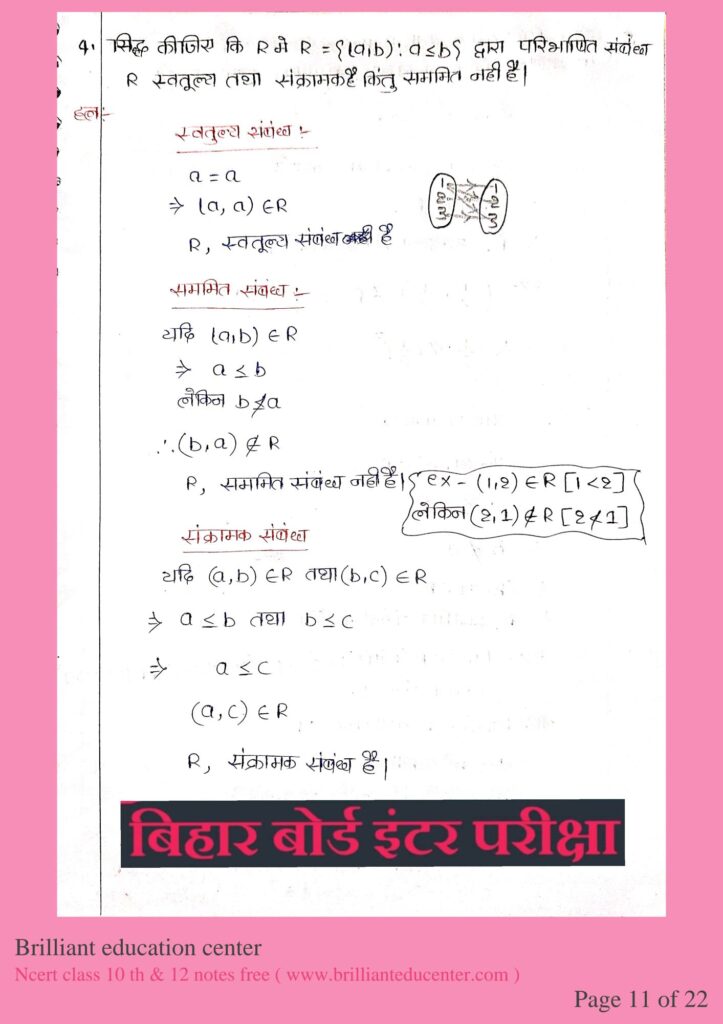 4. सिद्ध कीजिए कि R मे R = {(a,b) : a ≤ b} द्वारा परिभाषित संबंध
R स्वतूल्य तथा संक्रामक है किंतु सममित नही है।
हल:-
स्वतुल्य संबंध :-
a = a
⇒ (a, a) ∈ R
R, स्वतूल्य संबंध है
1 2 3
1 2 3
सममित संबंध :-
यदि (a,b) ∈ R
⇒ a ≤ b
लेकिन b ≰ a
∴ (b, a) ∉ R
R, सममित संबंध नही है।
ex - (1,2) ∈ R [1 < 2]
लेकिन (2,1) ∉ R [2 ≮ 1]
संक्रामक संबंध
यदि (a,b) ∈ R तथा (b,c) ∈ R
⇒ a ≤ b तथा b ≤ c
⇒ a ≤ c
(a,c) ∈ R
R, संक्रामक संबंध है।
बिहार बोर्ड इंटर परीक्षा
Brilliant education center
Ncert class 10 th & 12 notes free ( www.brillianteducenter.com )
Page 11 of 22